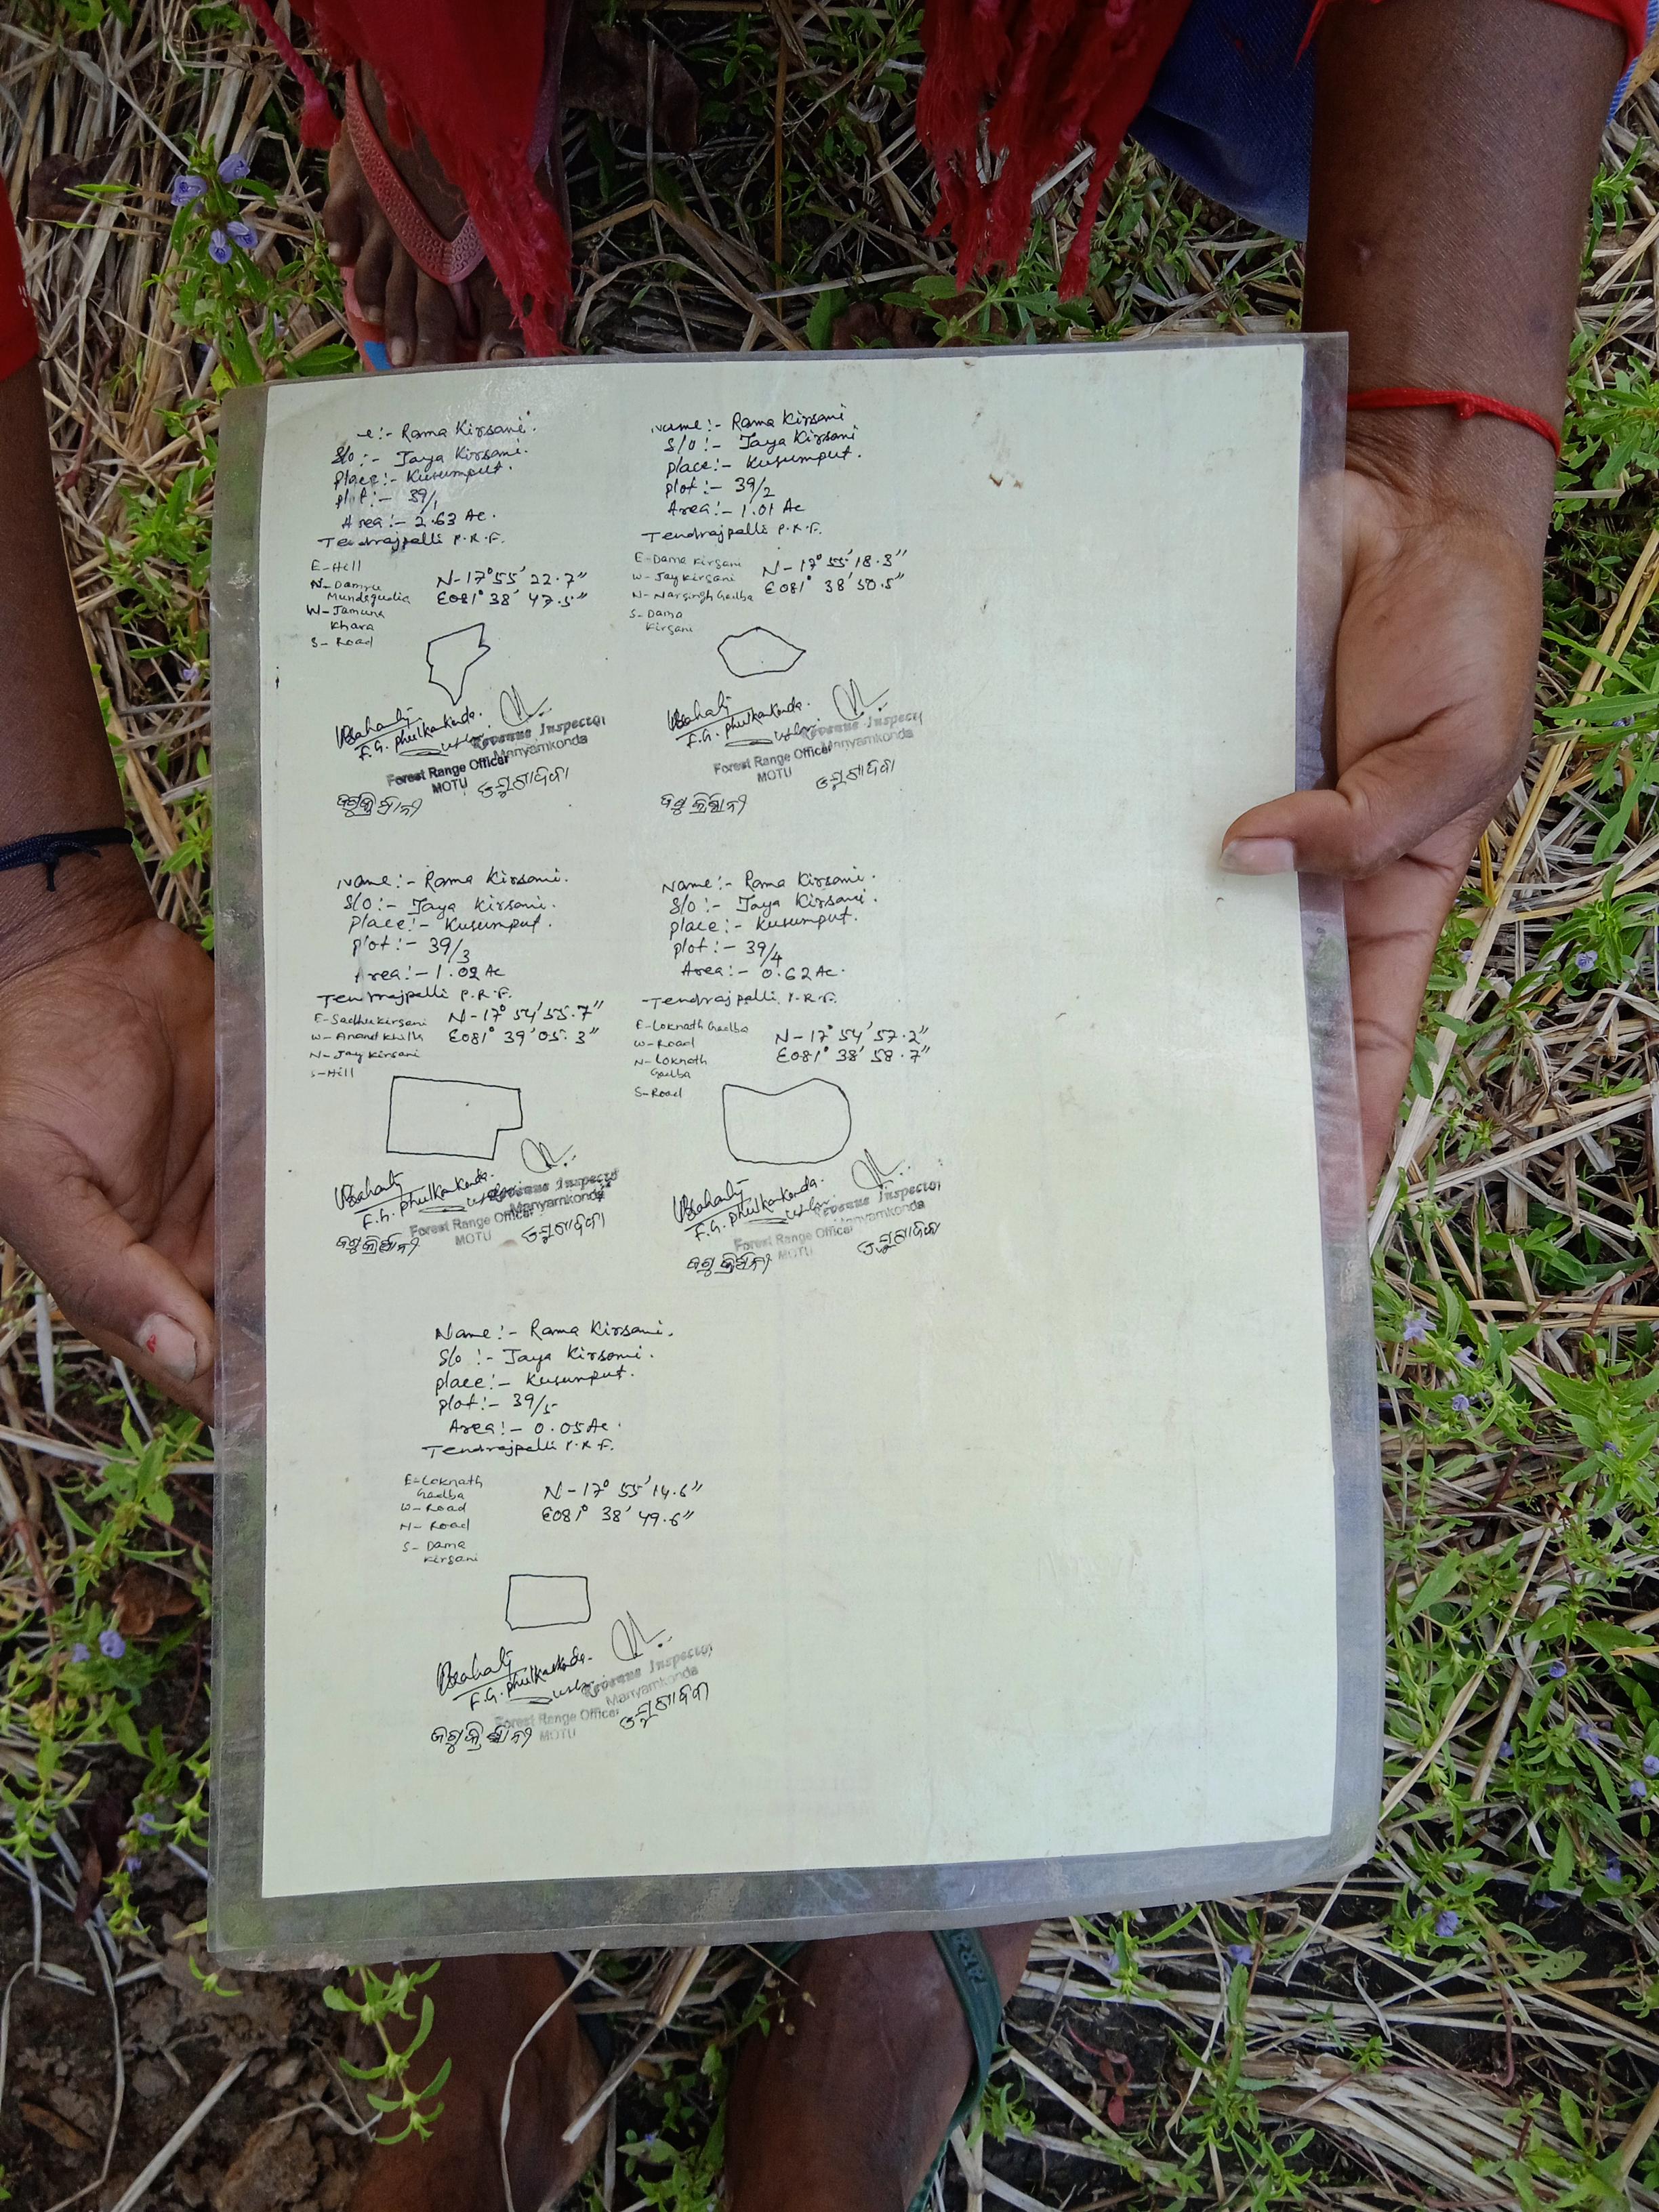 e:- Rama Kirsani.
S/o:- Jaya Kirsani.
Place:- Kusumput.
plot:- 39/1
Area:- 2.63 Ac.
Tendrajpalli P.R.F.
E-Hill
N-Damru
Mundagudia
W-Jamuna
Khara
S- Road
N-17° 55' 22.7"
E081° 38' 47.5"
F.G. Phulkankonda.
Revenue Inspector
Manyamkonda
Forest Range Officer
MOTU
Name:- Rama Kirsani
S/o:- Jaya Kirsani
place:- Kusumput.
plot:- 39/2
Area:- 1.01 Ac
Tendrajpalli P.R.F.
E-Dama Kirsani
W-Jay Kirsani
N-Narsingh Gadba
S-Dama
Kirsani
N-17° 55' 18.3"
E081° 38' 50.5"
F.G. Phulkankonda.
Revenue Inspector
Manyamkonda
Forest Range Officer
MOTU
Name:- Rama Kirsani.
S/o:- Jaya Kirsani.
Place:- Kusumput.
plot:- 39/3
Area:- 1.02 Ac
Tendrajpalli P.R.F.
E-Sadhu Kirsani
W-Anand Khilla
N-Jay Kirsani
S-Hill
N-17° 54' 55.7"
E081° 39' 05.3"
F.G. Phulkankonda.
Revenue Inspector
Manyamkonda
Forest Range Officer
MOTU
Name:- Rama Kirsani.
S/o:- Jaya Kirsani.
place:- Kusumput.
plot:- 39/4
Area:- 0.62 Ac.
Tendrajpalli P.R.F.
E-Loknath Gadba
W-Road
N-Loknath
Gadba
S-Road
N-17° 54' 57.2"
E081° 38' 58.7"
F.G. Phulkankonda.
Revenue Inspector
Manyamkonda
Forest Range Officer
MOTU
Name:- Rama Kirsani.
S/o:- Jaya Kirsani.
place:- Kusumput.
plot:- 39/5
Area:- 0.05 Ac.
Tendrajpalli P.R.F.
E-Loknath
Gadba
W-Road
N-Road
S-Dama
Kirsani
N-17° 55' 14.6"
E081° 38' 49.6"
F.G. Phulkankonda.
Revenue Inspector
Manyamkonda
Forest Range Officer
MOTU